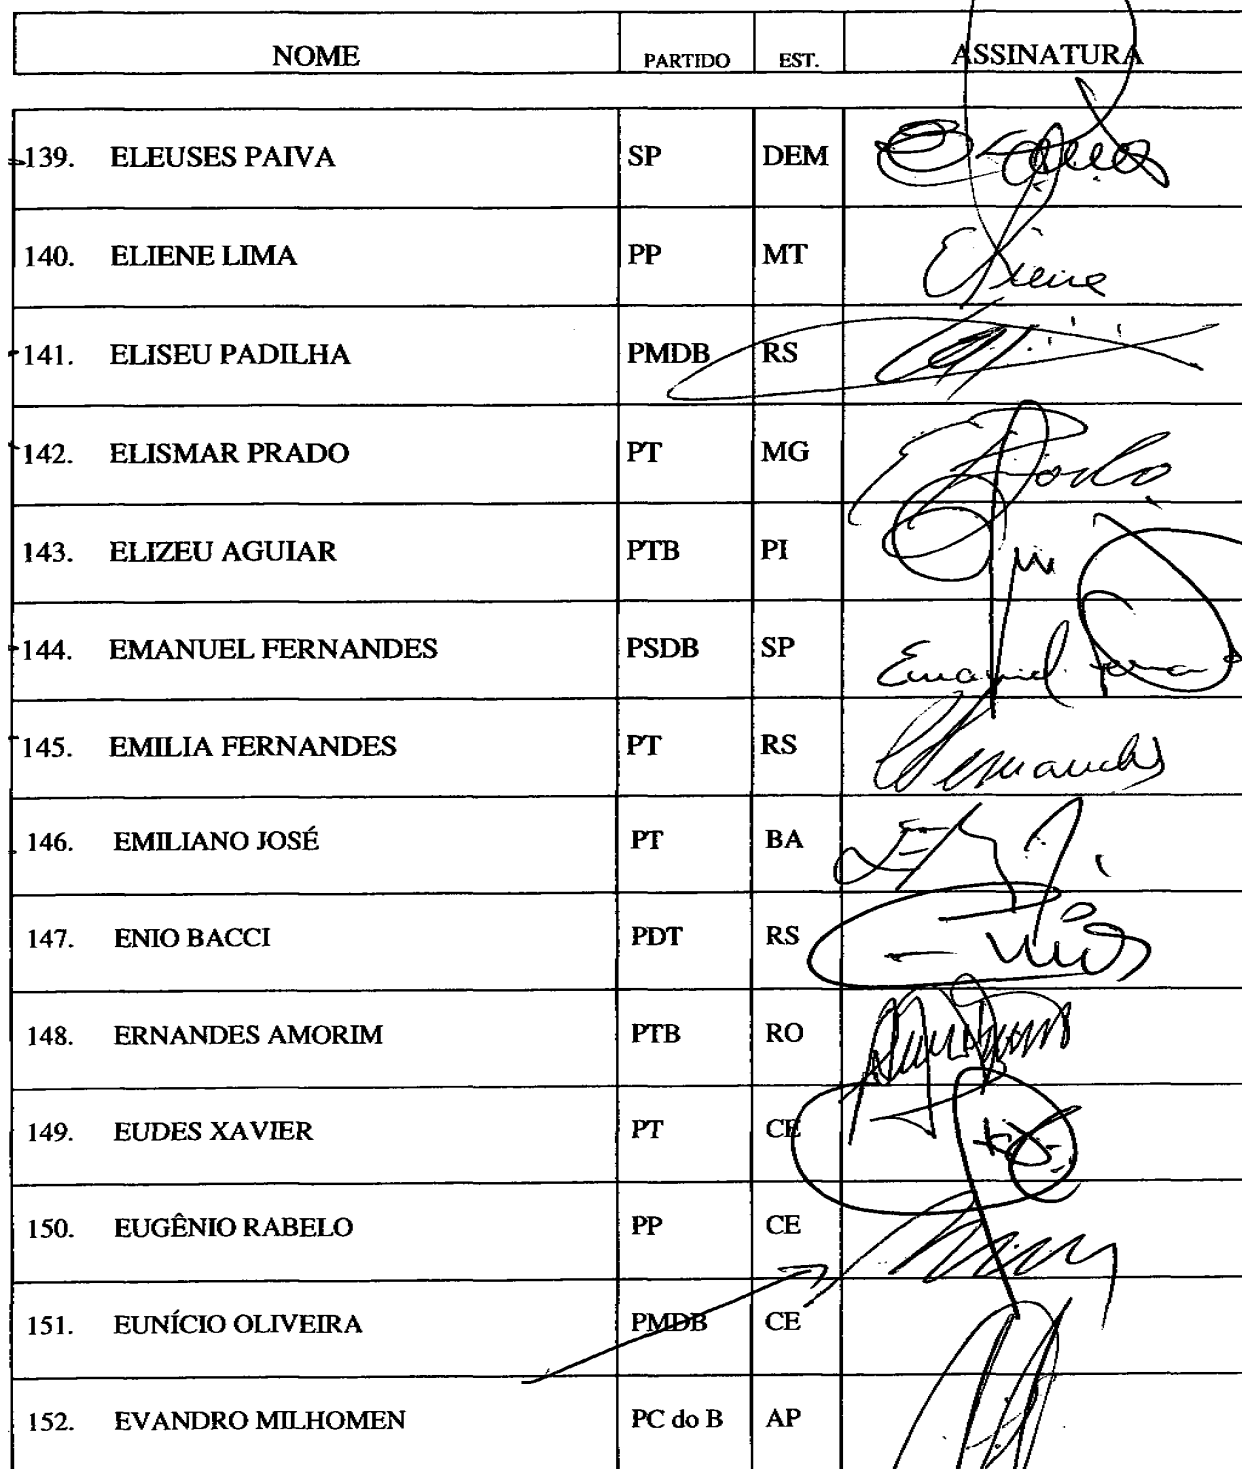 NOME PARTIDO EST. ASSINATURA
139. ELEUSES PAIVA SP DEM
140. ELIENE LIMA PP MT Eliene
141. ELISEU PADILHA PMDB RS
142. ELISMAR PRADO PT MG
143. ELIZEU AGUIAR PTB PI
144. EMANUEL FERNANDES PSDB SP Emanuel
145. EMILIA FERNANDES PT RS Fernandes
146. EMILIANO JOSÉ PT BA
147. ENIO BACCI PDT RS
148. ERNANDES AMORIM PTB RO
149. EUDES XAVIER PT CE
150. EUGÊNIO RABELO PP CE
151. EUNÍCIO OLIVEIRA PMDB CE
152. EVANDRO MILHOMEN PC do B AP